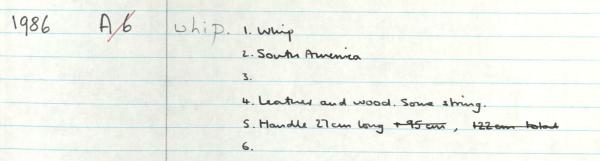 1986 A/6 whip. 1. Whip
2. South America
3.
4. Leather and wood. Some string.
5. Handle 27cm long + 95cm, 122cm total
6.